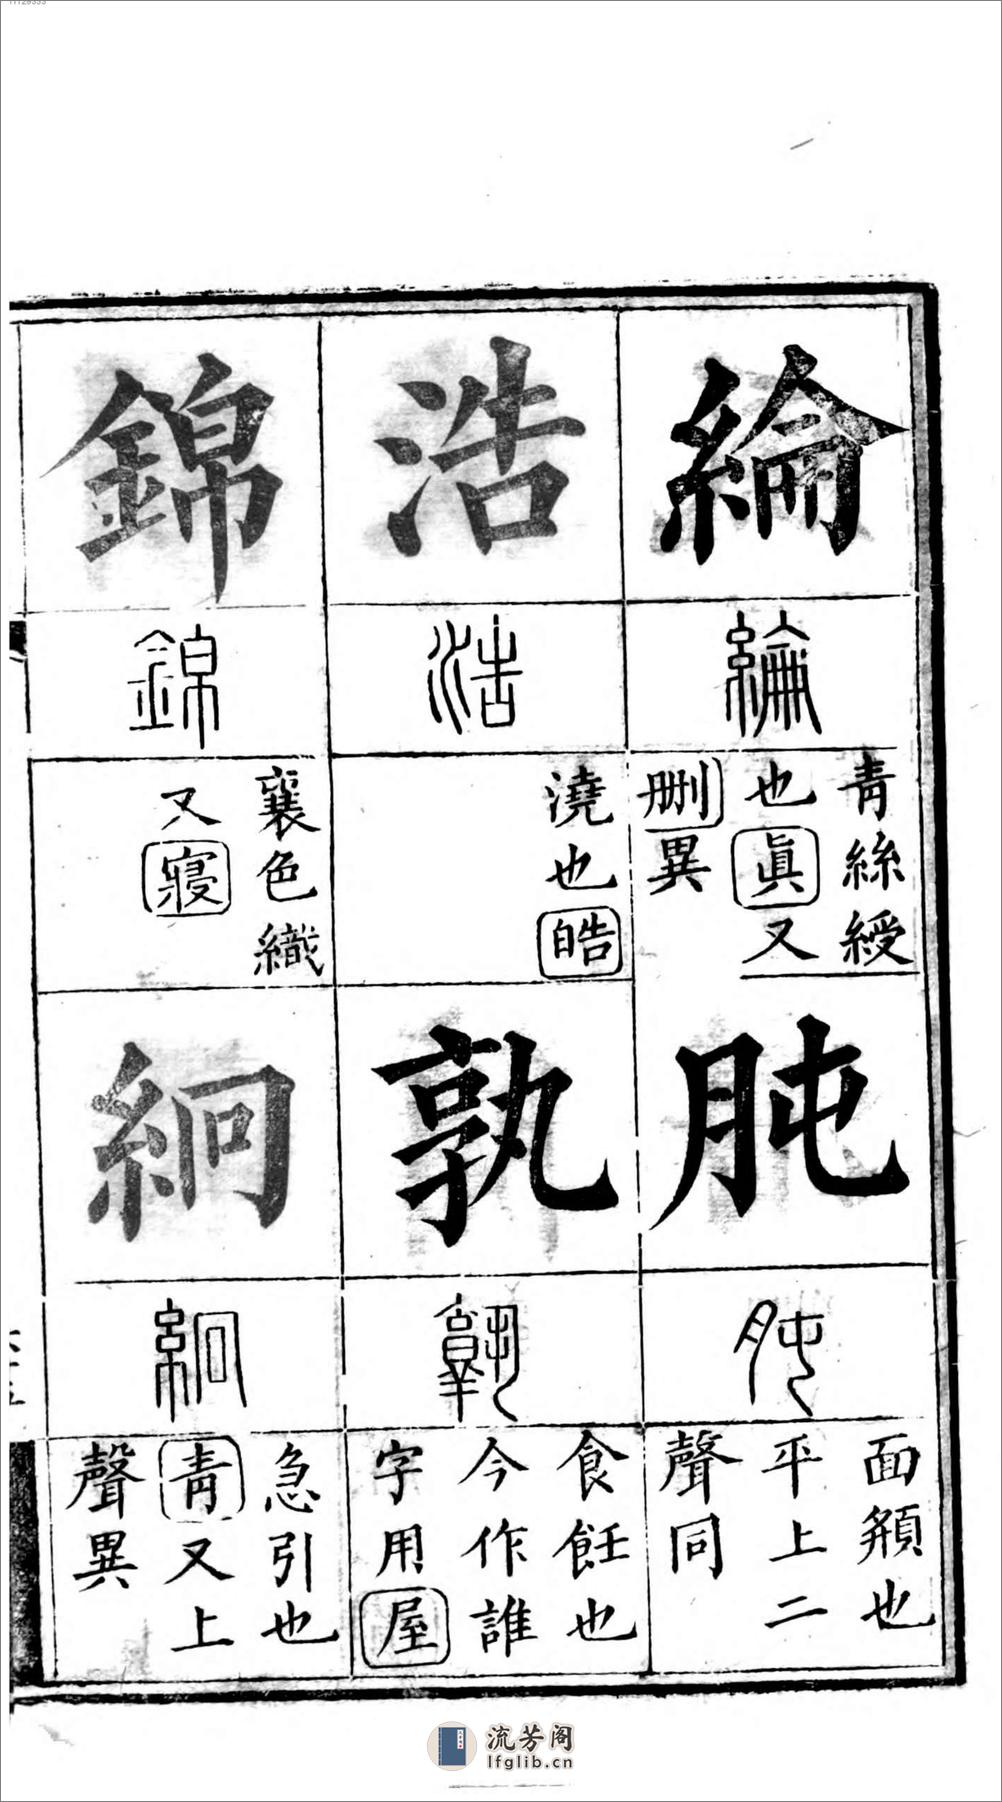 11129353
綸
綸
青絲綬
也眞又
刪異
肫
肫
面頯也
平上二
聲同
浩
浩
澆也皓
孰
孰
食飪也
今作誰
字用屋
錦
錦
襄色織
又寢
絅
絅
急引也
青又上
聲異
流芳阁
lfglib.cn